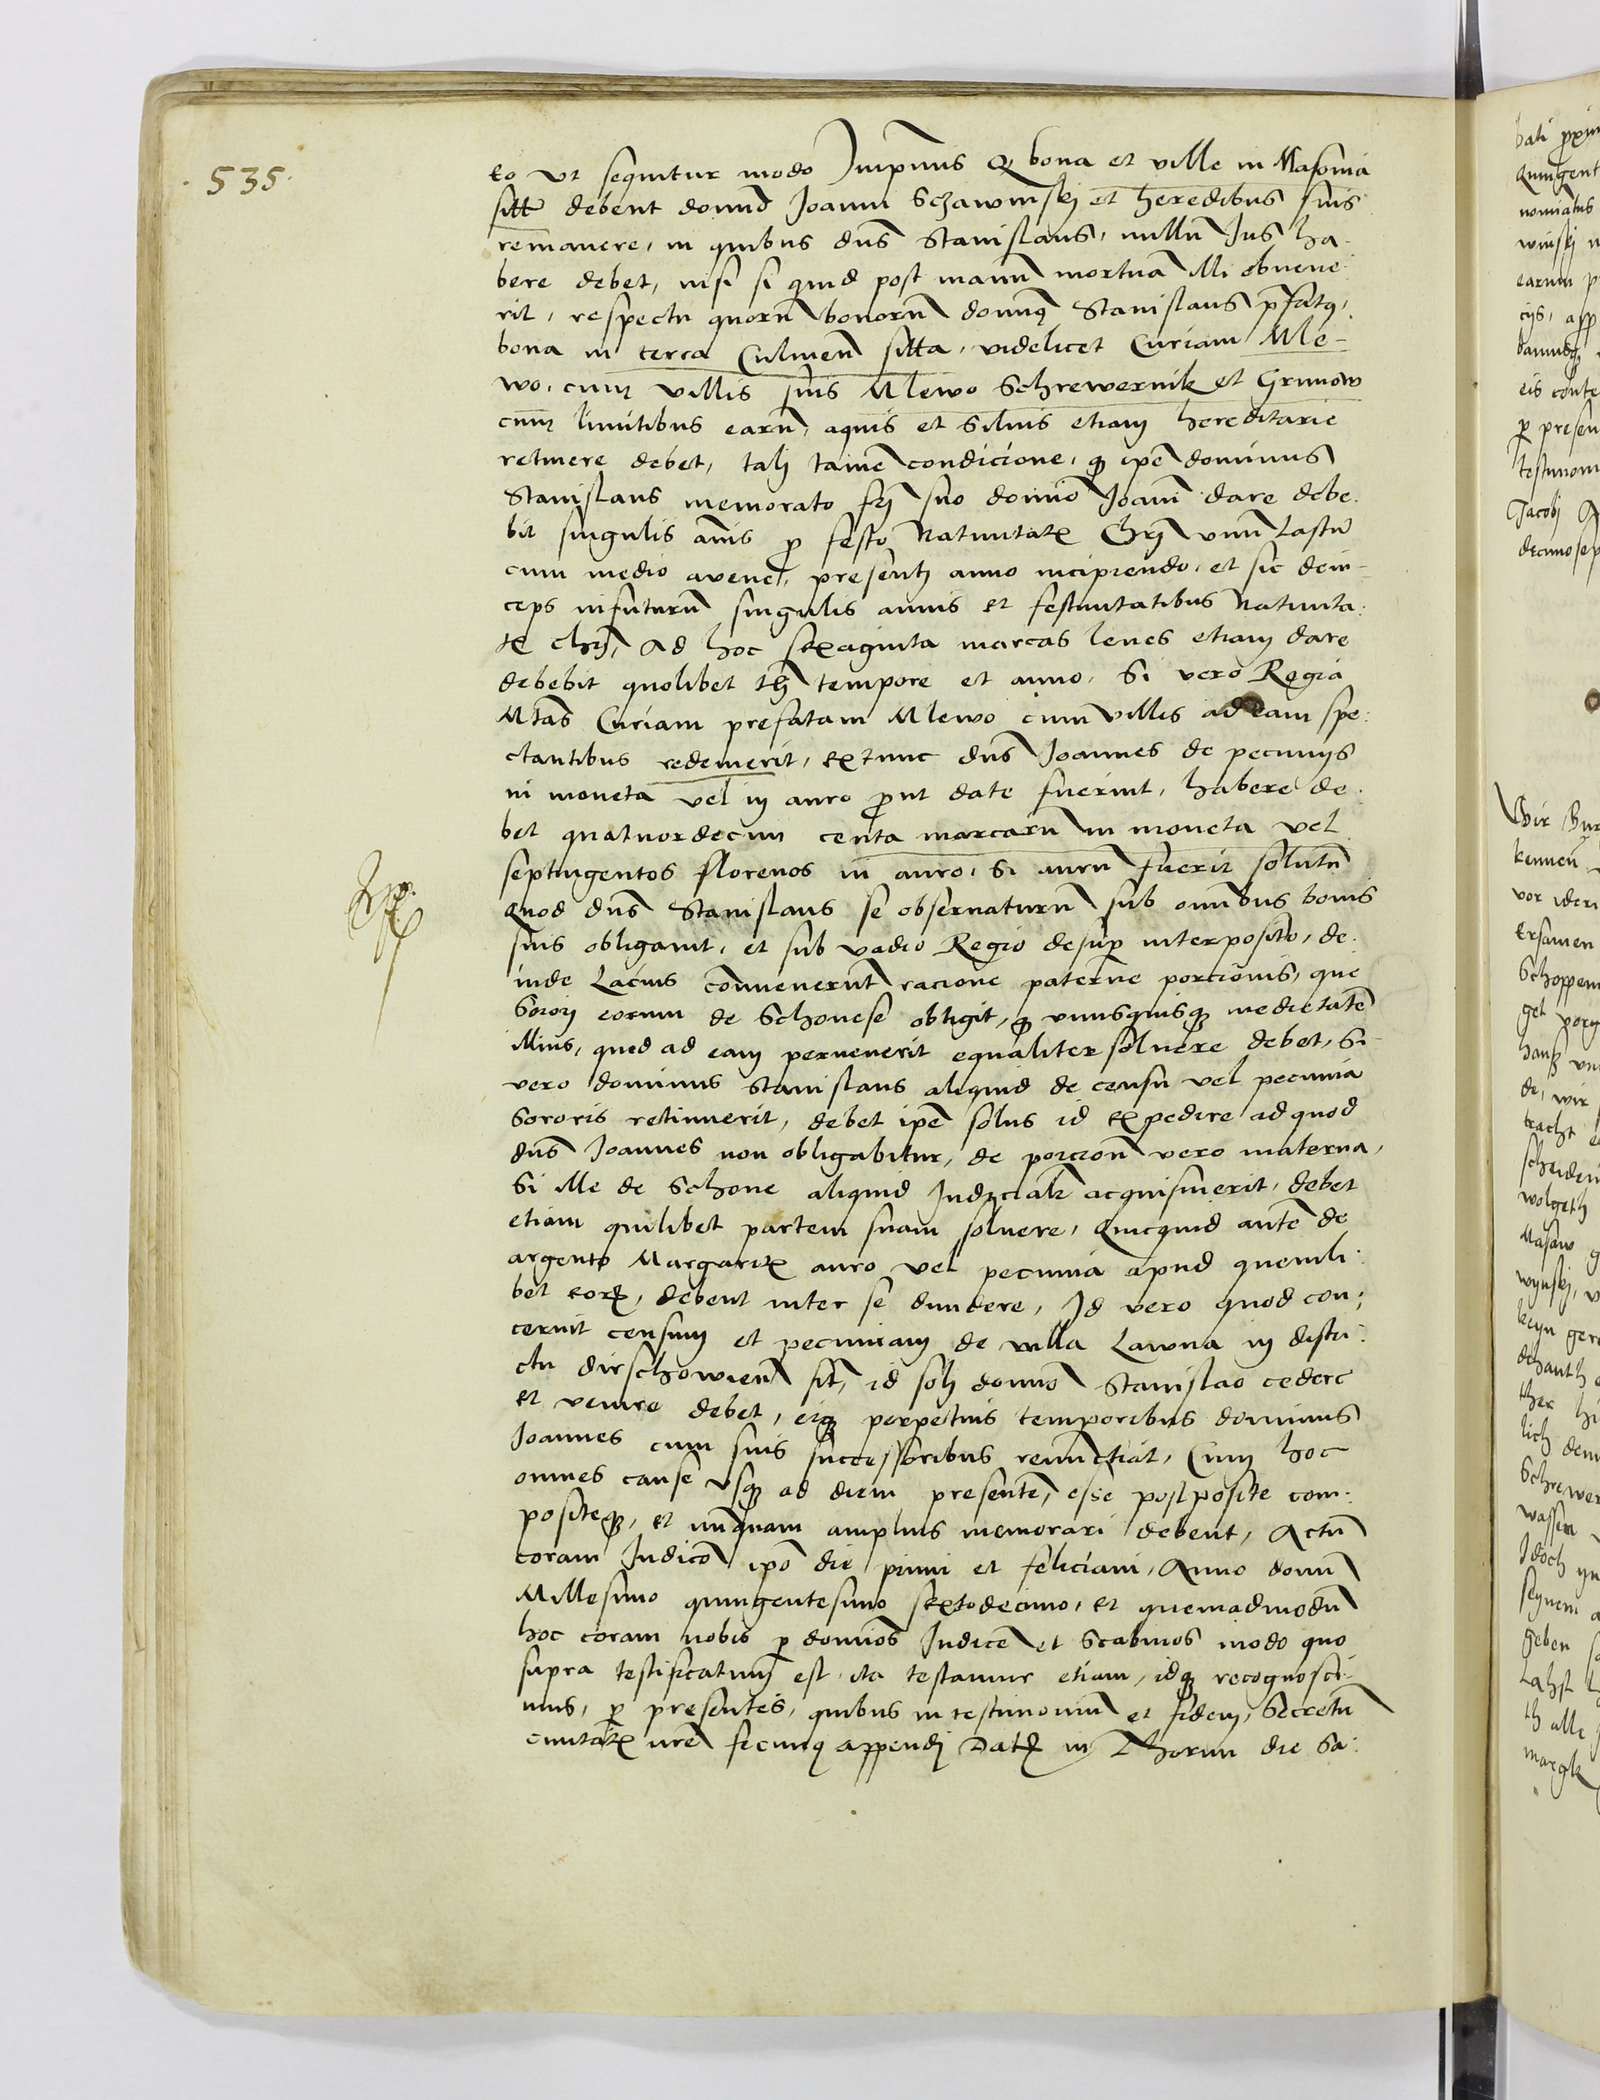 535
eo vt sequitur modo Inprimis Q bona et ville in Masonia
sitte debent domino Joanni Schawinskj et heredibus suis
remanere, in quibus dns Stanislaus, nullu Jus ha-
bere debet, nisi si quid post manu mortua illi obvene-
rit, respectu quoru bonoru dominus Stanislaus pfatus,
bona in terra Culmen sitta, videlicet Curiam Mle-
wo, cum villis suis Mlewo Schrewernik et Grunow
cum limitibus earu, aquis et siluis etiam hereditarie
retinere debet, talj tamen condicione, q ipe dominus
Stanislaus memorato fri suo domino Joanni dare debe-
bit singulis annis p festo Natiuitatis Chrj vnu Lastu
cum medio avene, presentj anno incipiendo, et sic dein-
ceps in futuru singulis annis et festiuitatibus Natiuita-
tis Chrj, Ad hoc sexaginta marcas leues etiam dare
debebit quolibet tli tempore et anno, Si vero Regia
Mtas Curiam prefatam Mlewo cum villis ad eam spe-
ctantibus redemerit, extunc dns Joannes de pecunijs
in moneta vel in auro put date fuerint, habere de-
bet quatuordecim centa marcaru in moneta vel
septingentos florenos in auro, si auru fuerit solutu
Quod dns Stanislaus se obseruaturu sub omnibus bonis
suis obligauit, et sub vadio Regio desup interposito, de-
inde Lacius conuenerut racione paterne porcionis, que
Sororj eorum de Schonese obtigit, q vnusquisq medietate
illius, quod ad eam peruenerit equaliter soluere debet, Si
vero dominus Stanislaus aliquid de censu vel pecunia
Sororis retinuerit, debet ipe solus id expedire ad quod
dns Joannes non obligabitur, de porcion vero materna,
Si ille de Schone aliquid Judicialit acquisiuerit, debet
etiam quilibet partem suam soluere, Quicquid aute de
argento Margaritis auro vel pecunia apud quemli-
bet eor, debent inter se diuidere, Id vero quod con-
cernit censum et pecuniam de villa Lawna in distri-
ctu dirschowien sit, id solj domino Stanislao cedere
et venire debet, eiq perpetuis temporibus dominus
Joannes cum suis successoribus renunctiat, Cum hoc
omnes cause vsq ad diem presente, esse postposite com-
positeq, et nunquam amplius memorari debent, Actu
coram Judicio ipo die primi et feliciani, Anno domini
Millesimo quingentesimo sextodecimo, et quemadmodu
hoc coram nobis p dominos Judice et Scabinos modo quo
supra testificatum est, ita testamur etiam, idq recognosci-
mus, p presentes, quibus in testimoniu et fidem, Secretu
ciuitatis nre fecimus appendj Dat in Thorun die Sa-